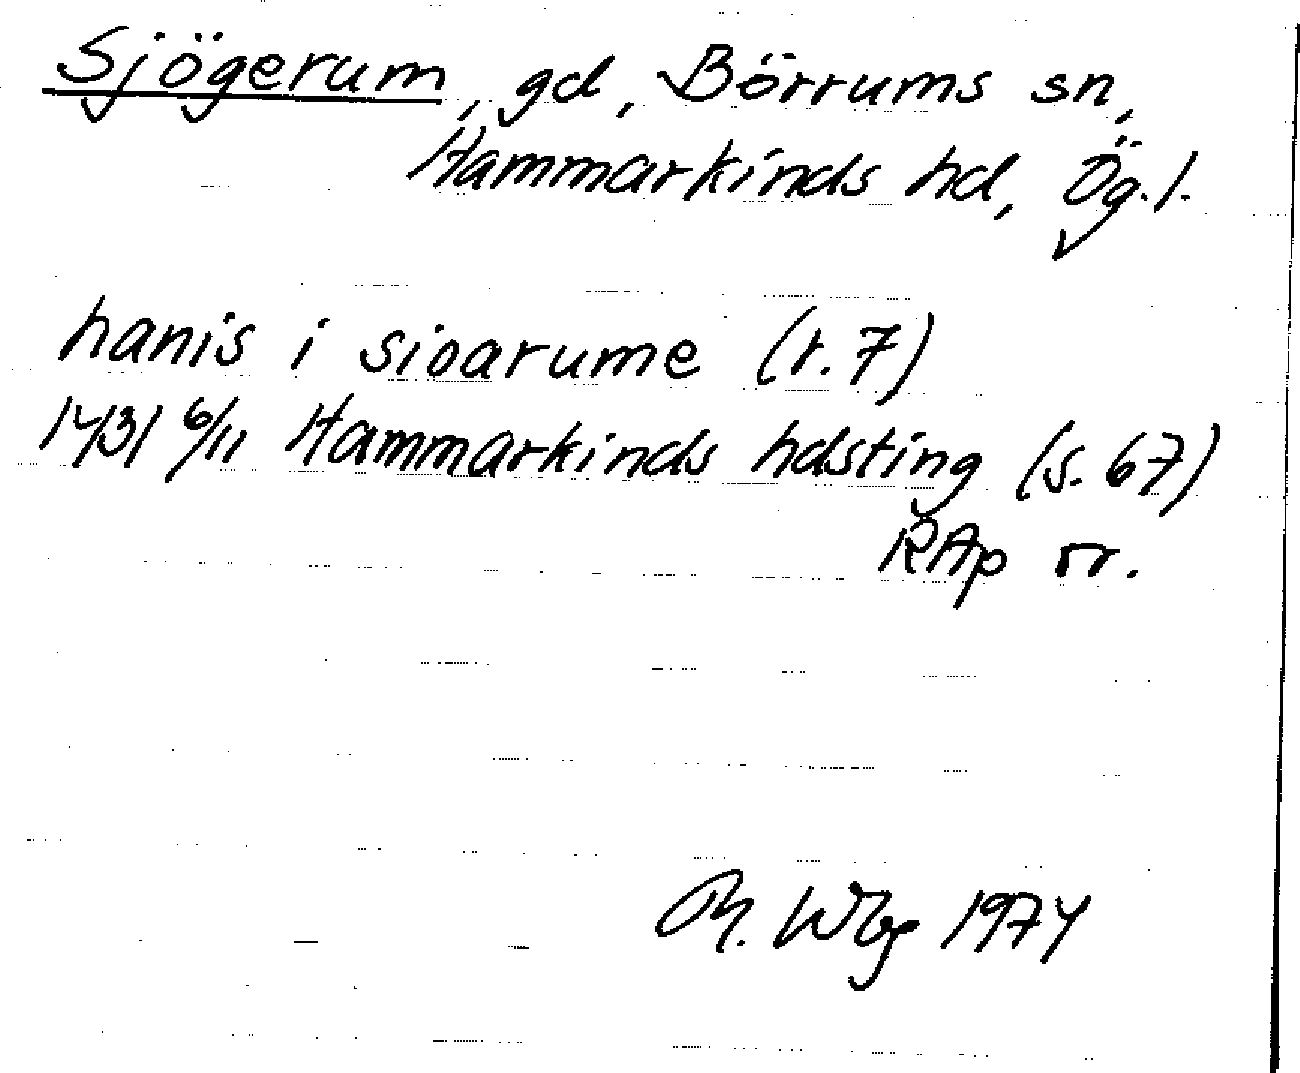 Sjögerum, gd, Börrums sn,
Hammarkinds hd, Ög.l.
hanis i sioarume (r. 7)
1431 6/11 Hammarkinds hdsting (s. 67)
RAp or.
Wbg 1974